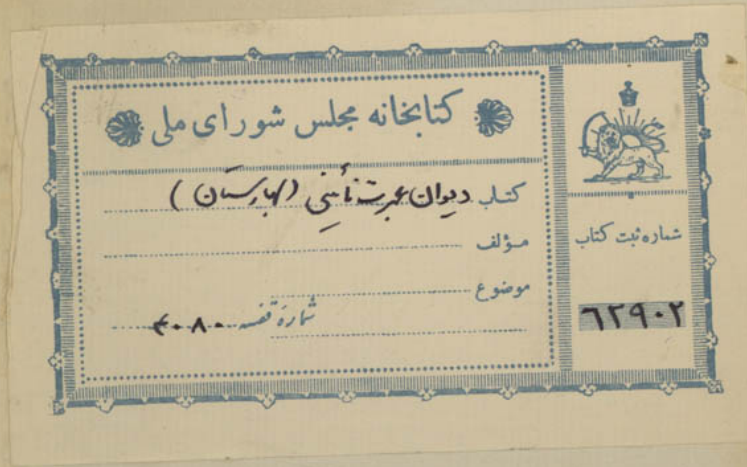 کتابخانه مجلس شورای ملی
کتاب دیوان عبرت نائینی (بهارستان)
مؤلف
موضوع
شماره قفسه ۴۰۸۰
شماره ثبت کتاب
۶۲۹۰۲